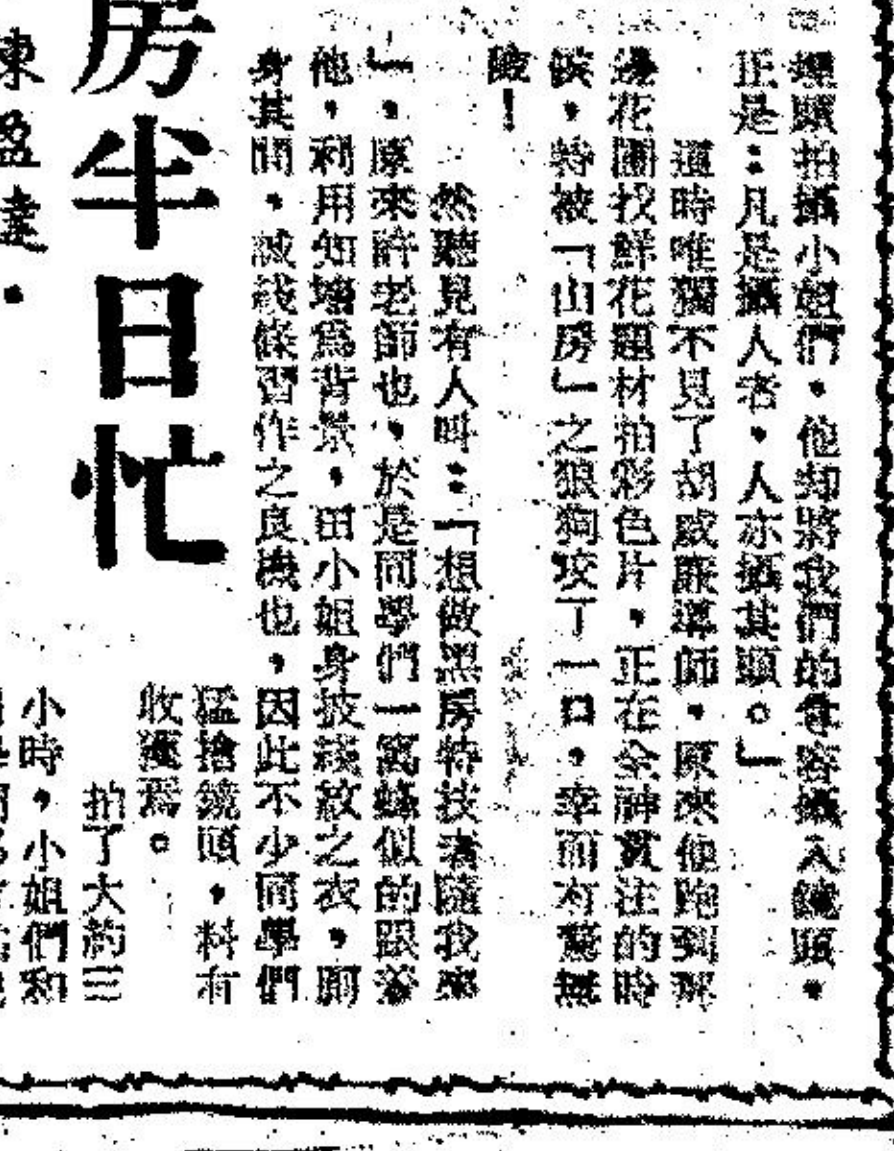 埋頭拍攝小姐們，他却將我們的尊容攝入鏡頭，
正是：凡是攝人者，人亦攝其頭。」
這時唯獨不見了胡威廉導師，原來他跑到那
邊花圃找鮮花題材拍彩色片，正在全神貫注的時
候，特被「山房」之狼狗咬了一口，幸而有驚無
險！
然聽見有人叫：「想做黑房特技者隨我來
」，原來許老師也，於是同學們一窩蜂似的跟着
他，利用短墻爲背景，田小姐身披綫紋之衣，廁
身其間，誠綫條習作之良機也，因此不少同學們
猛搶鏡頭，料有
收穫焉。
房半日忙
陳盈達．
拍了大約三
小時，小姐們和